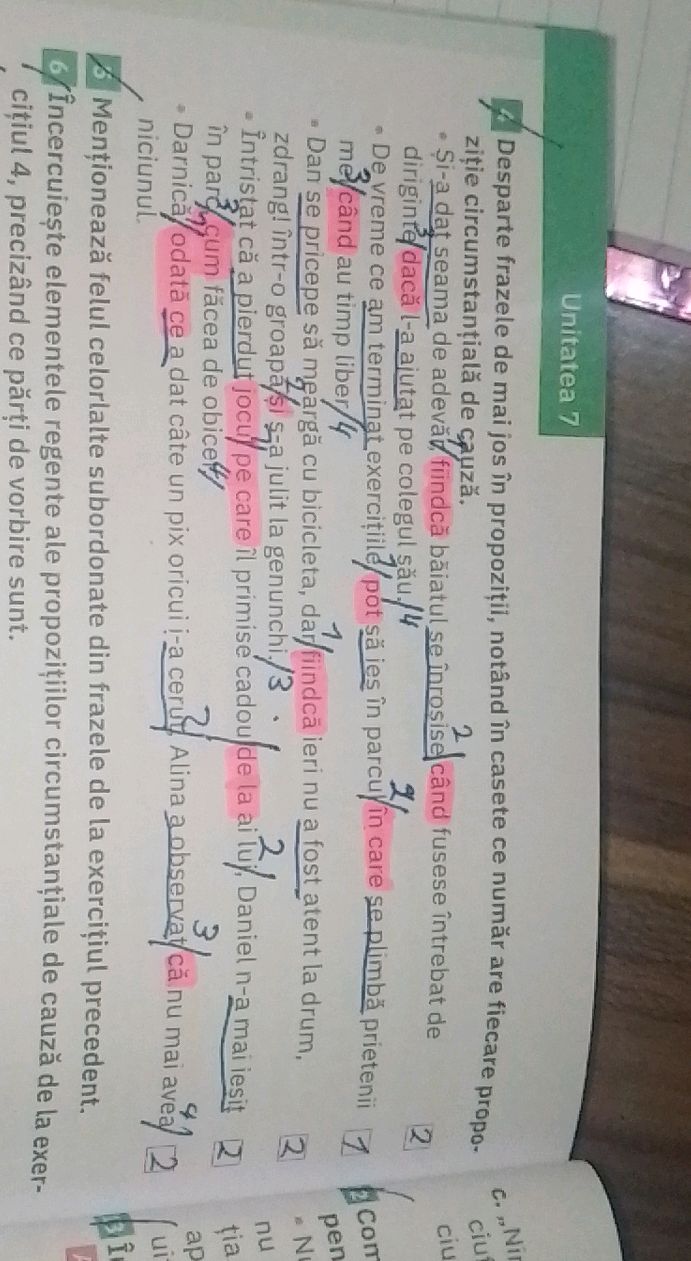 Unitatea 7
4 Desparte frazele de mai jos în propoziții, notând în casete ce număr are fiecare propo-
ziție circumstanțială de cauză.
• Și-a dat seama de adevăr, fiindcă băiatul se înroșise când fusese întrebat de
diriginte dacă l-a ajutat pe colegul său. 2
• De vreme ce am terminat exercițiile, pot să ies în parcul în care se plimbă prietenii 1
mei când au timp liber.
• Dan se pricepe să meargă cu bicicleta, dar fiindcă ieri nu a fost atent la drum,
zdrang! într-o groapă și s-a julit la genunchi. 2
• Întristat că a pierdut jocul pe care îl primise cadou de la ai lui, Daniel n-a mai ieșit
în parc, cum făcea de obicei. 2
• Darnică, odată ce a dat câte un pix oricui i-a cerut, Alina a observat că nu mai avea 2
niciunul.
5 Menționează felul celorlalte subordonate din frazele de la exercițiul precedent.
6 Încercuiește elementele regente ale propozițiilor circumstanțiale de cauză de la exer-
cițiul 4, precizând ce părți de vorbire sunt.